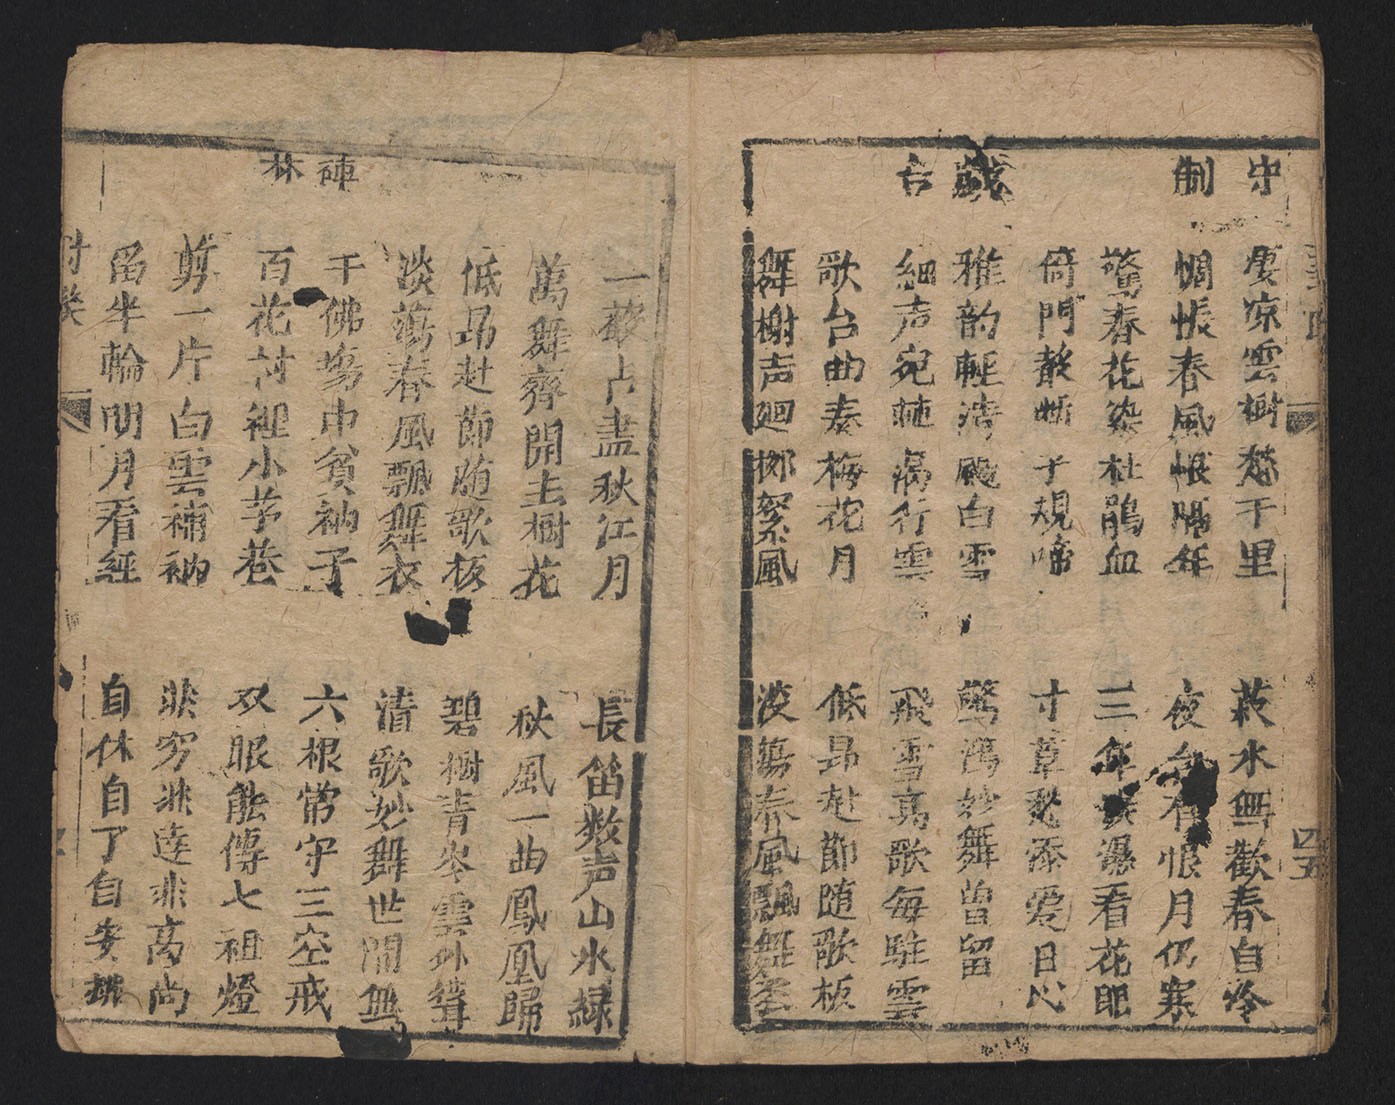 守制
凄凉雲樹愁千里
菽水無歡春自冷
惆悵春風恨隔年
夜台有恨月仍寒
驚春花染杜鵑血
三年淚瀑看花眼
倚門敲斷子規啼
寸草愁添爱日心
戲台
雅韵輕清飄白雪
驚鴻妙舞曾留
細声宛轉遏行雲
飛雪高歌每駐雲
歌台曲奏梅花月
低昂赴節随歌板
舞榭声廻柳絮風
淡蕩春風飄舞衣
四五
一聲占盡秋江月
長笛数声山水緑
萬舞齊開玉樹花
秋風一曲鳳凰歸
低昂赴節随歌板
碧樹青岑雲外聳
淡蕩春風飄舞衣
清歌妙舞世間無
禅林
千佛塲中貧衲子
六根常守三空戒
百花村裡小茅巷
双眼能傳七祖燈
剪一片白雲補衲
非穷非達非高尚
留半輪明月看經
自休自了自安排